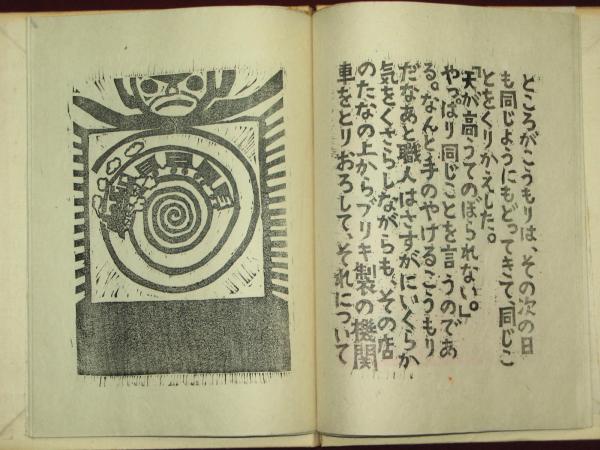 ところがこうもりは、その次の日
も同じようにもどってきて、同じこ
とをくりかえした。
「天が高うてのぼられない。」
やっぱり同じことを言うのであ
る。なんと手のやけるこうもり
だなあと職人はさすがにいくらか
気をくさらしながらも、その店
のたなの上からブリキ製の機関
車をとりおろして、それについて